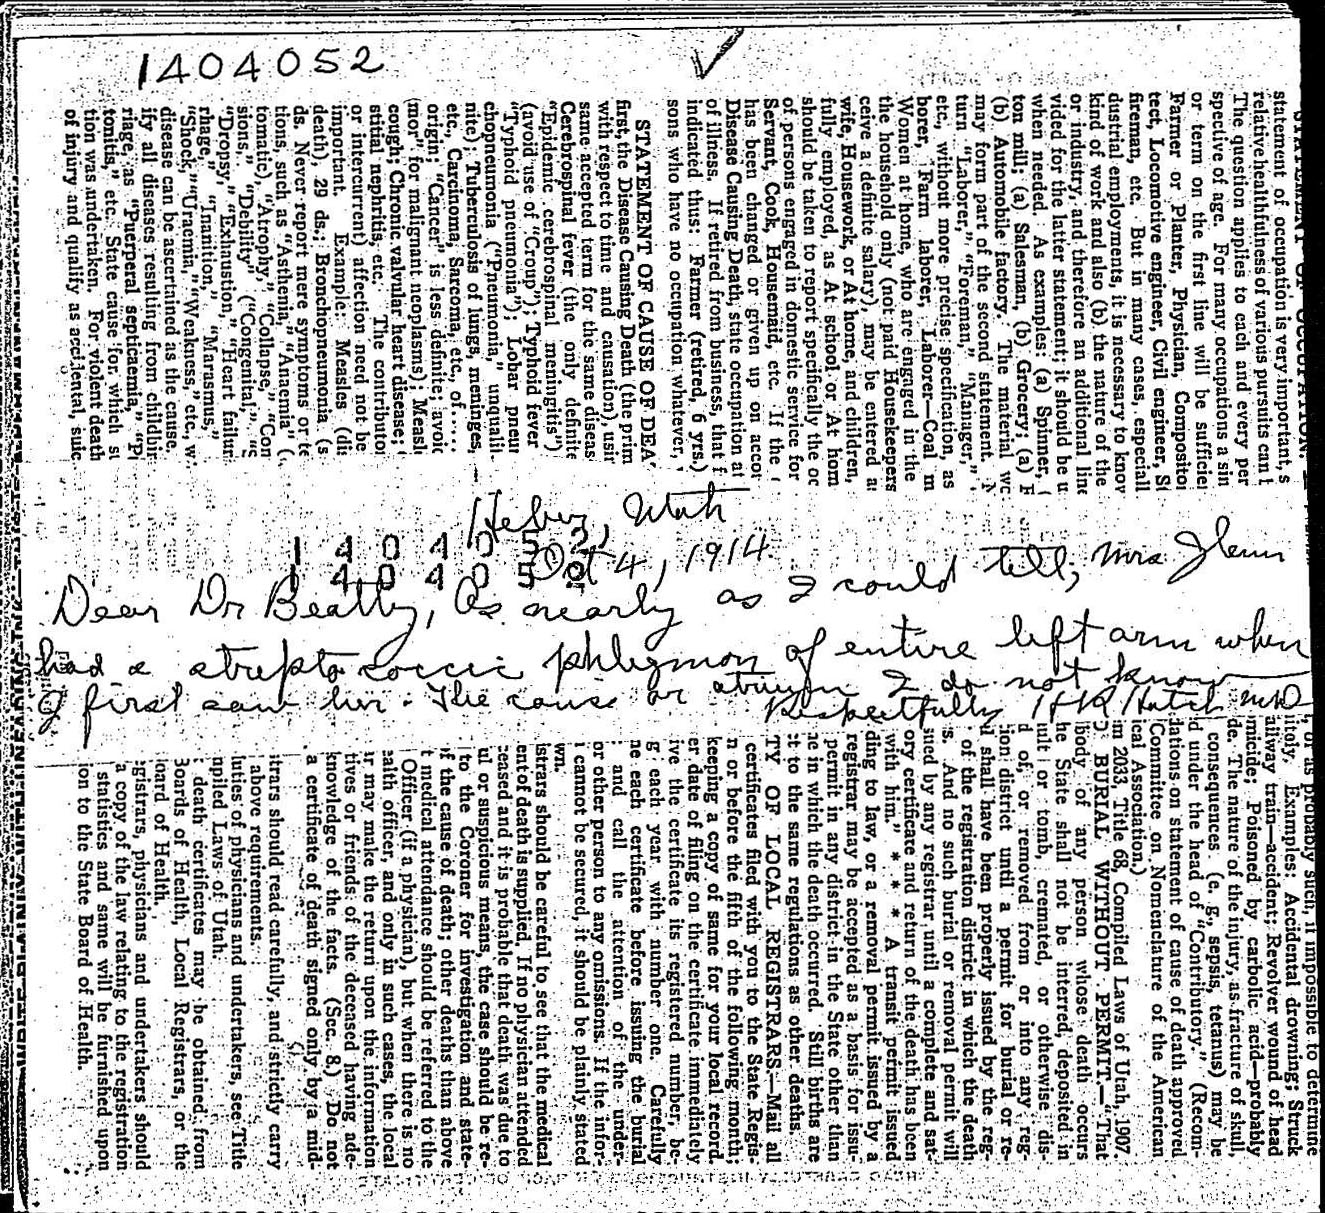 1404052
STATEMENT OF OCCUPATION.
statement of occupation is very important, s
relative healthfulness of various pursuits can
The question applies to each and every per
spective of age. For many occupations a sin
or term on the first line will be sufficien
Farmer or Planter, Physician, Composito
tect, Locomotive engineer, Civil engineer, St
fireman, etc. But in many cases, especiall
dustrial employments, it is necessary to know
kind of work and also (b) the nature of the
or industry, and therefore an additional line
vided for the latter statement; it should be u
when needed. As examples: (a) Spinner, (
ton mill; (a) Salesman, (b) Grocery; (a) F
(b) Automobile factory. The material wo
may form part of the second statement. N
turn "Laborer," "Foreman," "Manager,"
etc., without more precise specification, as
borer, Farm laborer, Laborer—Coal m
Women at home, who are engaged in the
the household only (not paid Housekeepers
ceive a definite salary), may be entered a
wife, Housework, or At home, and children,
fully employed, as At school or At hom
should be taken to report specifically the oc
of persons engaged in domestic service for
Servant, Cook, Housemaid, etc. If the
has been changed or given up on accou
Disease Causing Death, state occupation at
of illness. If retired from business, that f
indicated thus: Farmer (retired, 6 yrs.)
sons who have no occupation whatever,
STATEMENT OF CAUSE OF DEA
first, the Disease Causing Death (the prim
with respect to time and causation), usin
same accepted term for the same diseas
Cerebrospinal fever (the only definite
"Epidemic cerebrospinal meningitis")
(avoid use of "Croup"); Typhoid fever
"Typhoid pneumonia"); Lobar pneum
chopneumonia ("Pneumonia," unquali-
nite); Tuberculosis of lungs, meninges,
etc., Carcinoma, Sarcoma, etc., of.....
origin; "Cancer" is less definite; avoid
mor" for malignant neoplasms); Measl
cough; Chronic valvular heart disease;
stitial nephritis, etc. The contributo
or intercurrent) affection need not be
important. Example: Measles (dis
death), 29 ds.; Bronchopneumonia (s
ds. Never report mere symptoms or te
tions, such as "Asthenia," "Anaemia" (
tomatic), "Atrophy," "Collapse," "Con
sions," "Debility" ("Congenital,"
"Dropsy," "Exhaustion," "Heart failur
rhage," "Inanition," "Marasmus,"
"Shock," "Uraemia," "Weakness," etc., w
disease can be ascertained as the cause.
ify all diseases resulting from childbir
riage, as "Puerperal septicaemia," "P
tonitis," etc. State cause for which su
tion was undertaken. For violent death
of injury and qualify as accidental, suic
Heber, Utah
1404052
Oct 4, 1914
1404052
Dear Dr Beatty, As nearly as I could tell, Mrs Glenn
had a streptococcic phlegmon of entire left arm when
I first saw her. The cause or I do not know
Respectfully Hatch MD
or as probably such, if impossible to determine
itely. Examples: Accidental drowning; Struck
ailway train—accident; Revolver wound of head
micide; Poisoned by carbolic acid—probably
de. The nature of the injury, as fracture of skull,
consequences (e. g., sepsis, tetanus) may be
d under the head of "Contributory." (Recom-
dations on statement of cause of death approved
Committee on Nomenclature of the American
ical Association.)
m 2033, Title 68, Compiled Laws of Utah, 1907.
BURIAL WITHOUT PERMIT—"That
body of any person whose death occurs
he State shall not be interred, deposited in
ult or tomb, cremated, or otherwise dis-
d of, or removed from or into any reg-
ion district until a permit for burial or re-
l shall have been properly issued by the reg-
of the registration district in which the death
s. And no such burial or removal permit will
sued by any registrar until a complete and sat-
ory certificate and return of the death has been
with him." * * * A transit permit issued
ding to law, or a removal permit issued by a
registrar may be accepted as a basis for issu-
permit in any district in the State other than
ne in which the death occurred. Still births are
ct to the same regulations as other deaths.
TY OF LOCAL REGISTRARS—Mail all
certificates filed with you to the State Regis-
n or before the fifth of the following month;
keeping a copy of same for your local record.
er date of filing on the certificate immediately
ive the certificate its registered number, be-
g each year with number one. Carefully
ne each certificate before issuing the burial
and call the attention of the under-
or other person to any omissions. If the infor-
cannot be secured, it should be plainly stated
wn.
istrars should be careful to see that the medical
ent of death is supplied. If no physician attended
eased and it is probable that death was due to
ul or suspicious means, the case should be re-
to the Coroner for investigation and state-
f the cause of death; other deaths than above
t medical attendance should be referred to the
Officer (if a physician), but when there is no
ealth officer, and only in such cases, the local
r may make the return upon the information
tives or friends of the deceased having ade-
knowledge of the facts. (Sec. 8.) Do not
a certificate of death signed only by a mid-
strars should read carefully, and strictly carry
above requirements.
luties of physicians and undertakers, see Title
mpiled Laws of Utah.
death certificates may be obtained from
Boards of Health, Local Registrars, or the
oard of Health.
gistrars, physicians and undertakers should
a copy of the law relating to the registration
statistics and same will be furnished upon
ion to the State Board of Health.